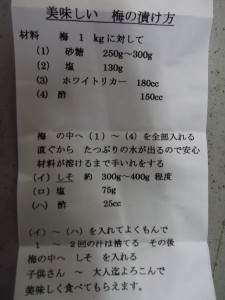 美味しい 梅の漬け方
材料 梅 1 kgに対して
(1) 砂糖 250g~300g
(2) 塩 130g
(3) ホワイトリカー 180cc
(4) 酢 150cc
梅 の中へ(1)~(4)を全部入れる
直ぐから たっぷりの水が出るので安心
材料が溶けるまで手いれをする
(イ)しそ 約 300g~400g 程度
(ロ)塩 75g
(ハ) 酢 25cc
(イ)~(ハ)を入れてよくもんで
1 ~ 2回の汁は捨てる その後
梅の中へ しそ を入れる
子供さん ~ 大人迄よろこんで
美味しく食べてもらえます。